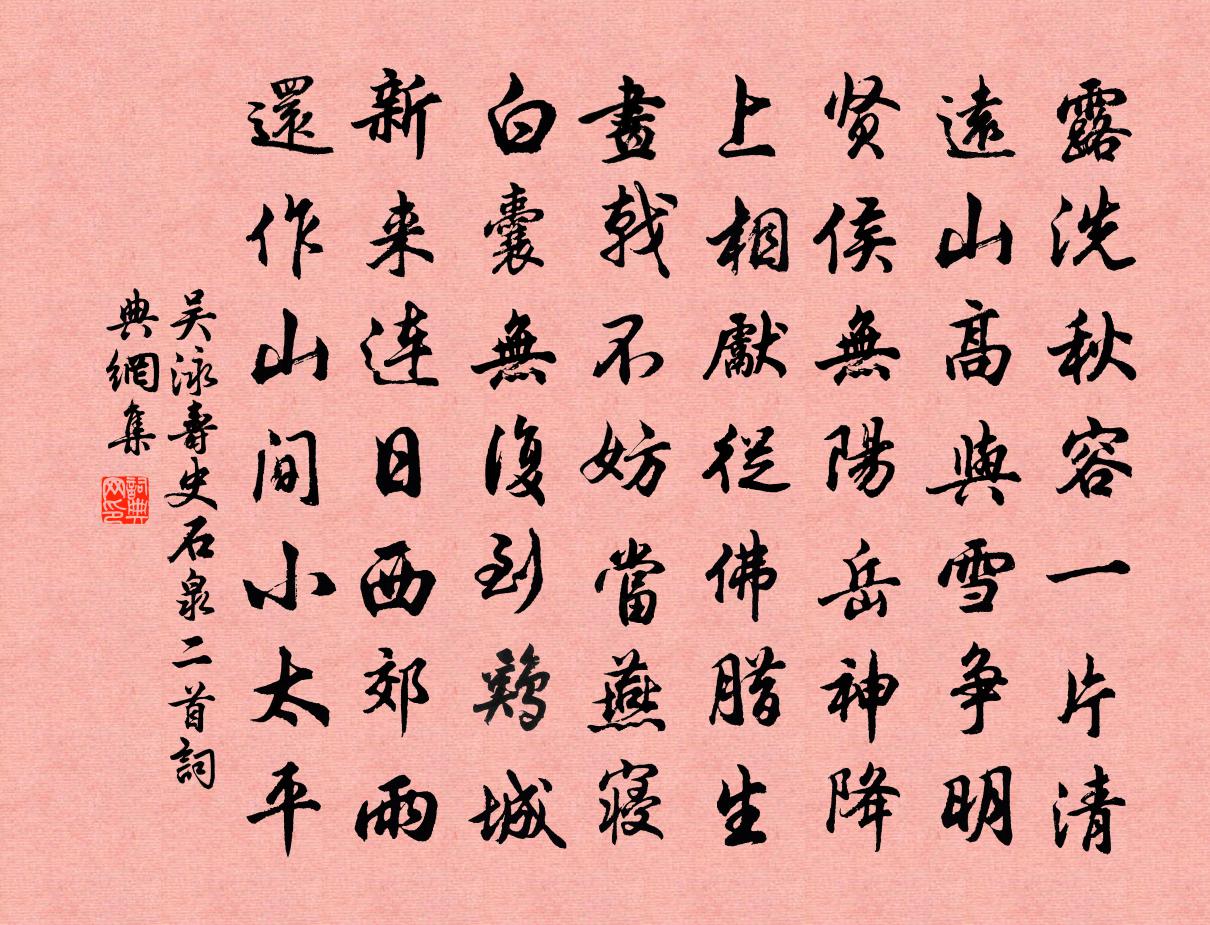 露洗秋容一片清
遠山高與雪争明
贤侯無陽岳神降
上相獻從佛腊生
畫戟不妨當燕寝
白囊無復到鷄城
新来連日西郊雨
還作山间小太平
吴泳壽史石泉二首詞
典網集
詞典
网印